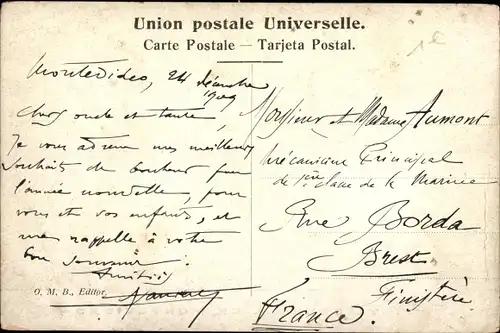 Union postale Universelle.
Carte Postale — Tarjeta Postal.
1E
Montevideo, 24 décembre
1909
Chers oncle et tante,
Je vous adresse mes meilleurs
souhaits de bonheur pour
l'année nouvelle, pour
vous et vos enfants, et
me rappelle à votre
bon souvenir.
O. M. B., Editor.
Monsieur et Madame Aumont
Mécanicien Principal
de 1ère classe de la Marine
Rue Borda
Brest
Finistère
France.